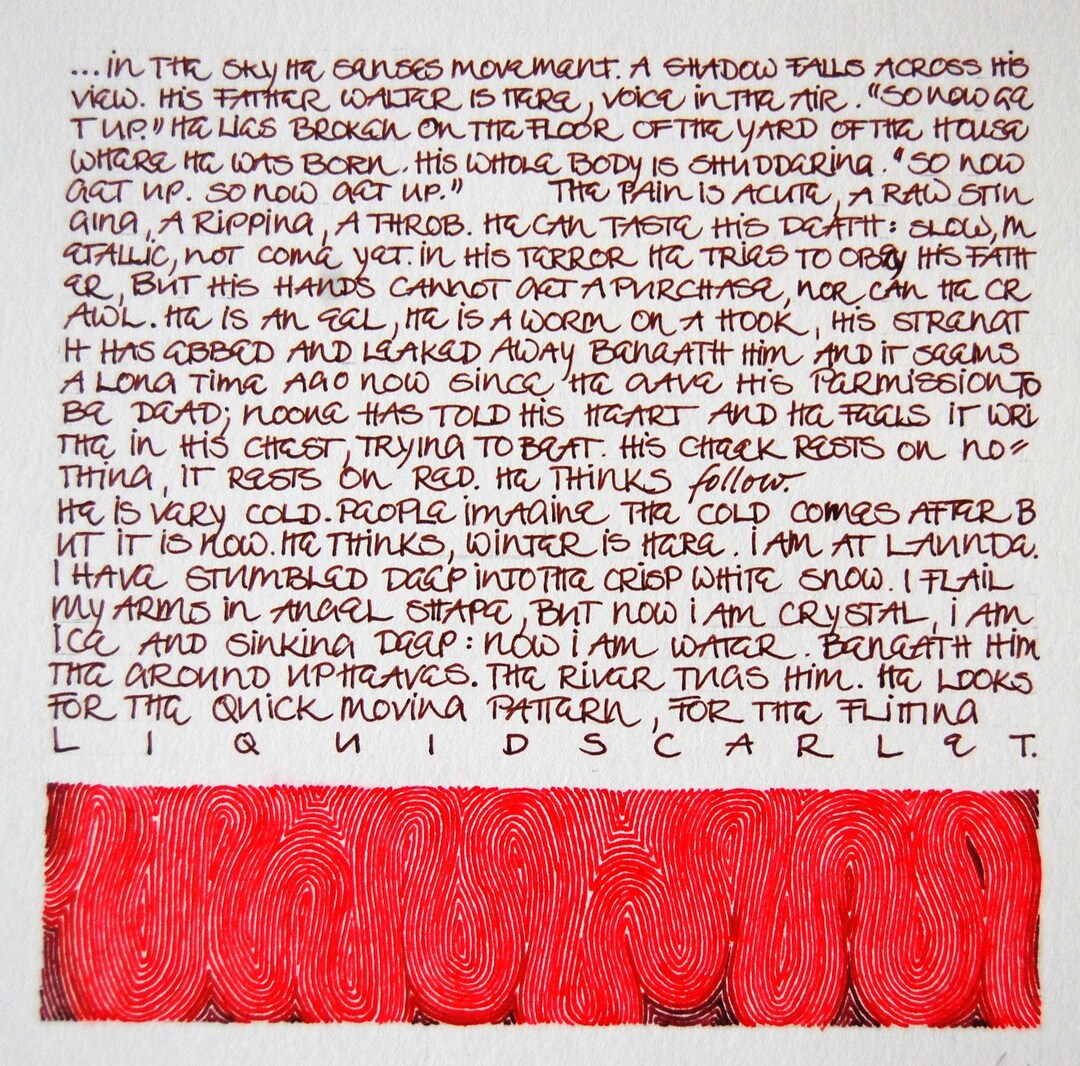 ...in THE SKY HE SENSES MOVEMENT. A SHADOW FALLS ACROSS HiS
VIEW. HIS FATHER WALTER IS HERE, VOICE IN THE AIR. "SO NOW GE
T UP." HE LIES BROKEN ON THE FLOOR OF THE YARD OF THE HOUSE
WHERE HE WAS BORN. HIS WHOLE BODY IS SHUDDERING. "SO NOW
GET UP. SO NOW GET UP." THE PAIN IS ACUTE, A RAW STIN
GING, A RIPPING, A THROB. HE CAN TASTE HIS DEATH: SLOW, M
ETALLIC, NOT COME YET. IN HIS TERROR HE TRIES TO OBEY HIS FATH
ER, BUT HIS HANDS CANNOT GET A PURCHASE, NOR CAN HE CR
AWL. HE IS AN EEL, HE IS A WORM ON A HOOK, HIS STRENGT
H HAS EBBED AND LEAKED AWAY BENEATH HIM AND IT SEEMS
A LONG TIME AGO NOW SINCE HE GAVE HIS PERMISSION TO
BE DEAD; NOONE HAS TOLD HIS HEART AND HE FEELS IT WRI
THE IN HIS CHEST, TRYING TO BEAT. HIS CHEEK RESTS ON NO=
THING, IT RESTS ON RED. HE THINKS follow.
HE IS VERY COLD. PEOPLE IMAGINE THE COLD COMES AFTER B
UT IT IS NOW. HE THINKS, WINTER IS HERE. I AM AT LAUNDE.
I HAVE STUMBLED DEEP INTO THE CRISP WHITE SNOW. I FLAIL
MY ARMS IN ANGEL SHAPE, BUT NOW I AM CRYSTAL, I AM
ICE AND SINKING DEEP: NOW I AM WATER. BENEATH HIM
THE GROUND UPHEAVES. THE RIVER TUGS HIM. HE LOOKS
FOR THE QUICK MOVING PATTERN, FOR THE FLITTING
L I Q U I D S C A R L E T.